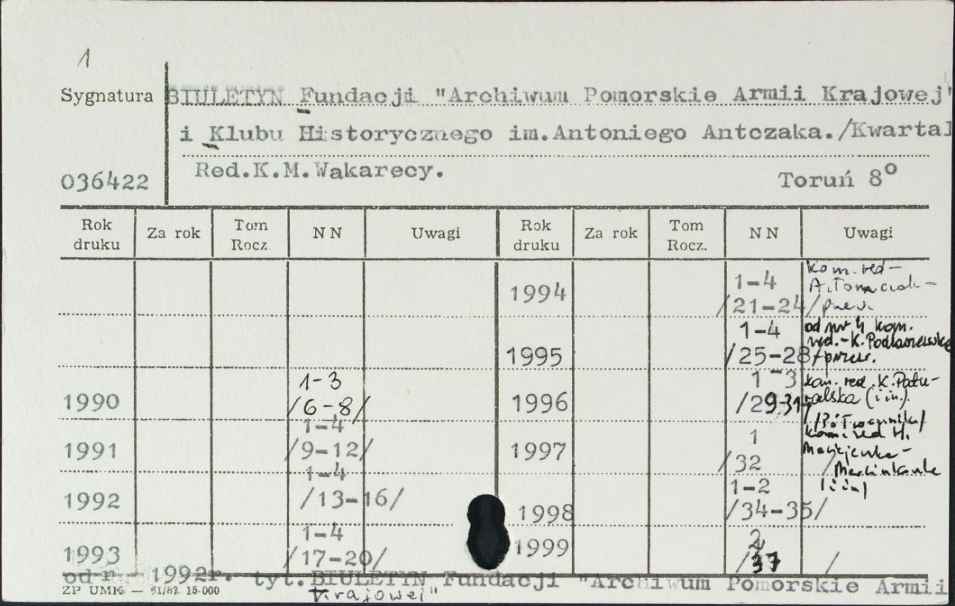 1
Sygnatura BIULETYN Fundacji "Archiwum Pomorskie Armii Krajowej"
i Klubu Historycznego im.Antoniego Antczaka./Kwartal
036422 Red.K.M.Wakarecy. Toruń 8°
Rok druku Za rok Tom Rocz NN Uwagi Rok druku Za rok Tom Rocz. NN Uwagi
1994 1-4 /21-24/ Kom. red- przew.
1995 1-4 /25-28/ od nr 4 kom. red.-K. przew.
1990 1-3 /6-8/ 1996 1-3 /29-31/ kom. red. K. (i in.) /Półrocznik/
1991 1-4 /9-12/ 1997 1 /32 / kom. red H. (i in)
1992 1-4 /13-16/ 1998 1-2 /34-35/
1993 1-4 /17-20/ 1999 2 /37 /
od r. 1992r. tyt.BIULETYN Fundacji "Archiwum Pomorskie Armii
Krajowej"
ZP UMK — 61/82 15-000